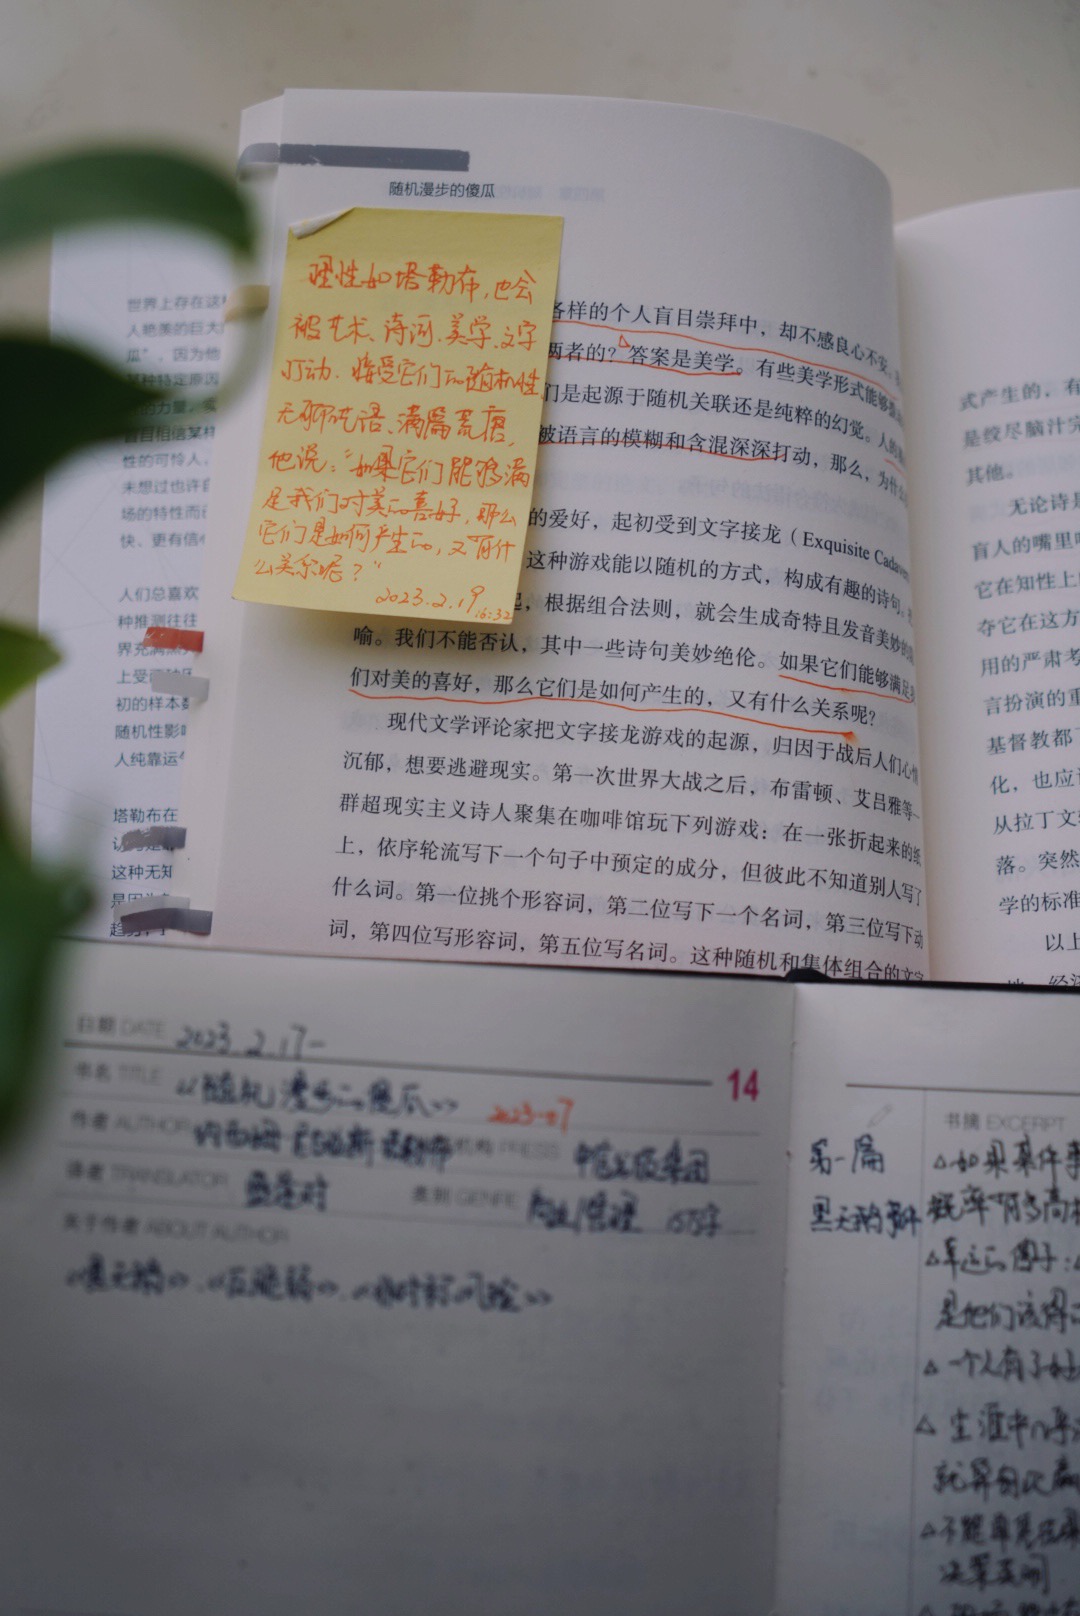 随机漫步的傻瓜
理性如塔勒布,也会
被艺术、诗词、美学、文字
打动.接受它们的随机性
无聊
满篇荒唐,
他说:“如果它们能够满
足我们对美的喜好,那么
它们是如何产生的,又有什
么关系呢?”
2023.2.19
16:32
各样的个人盲目崇拜中,却不感良心不安。
两者的?答案是美学。有些美学形式能够
们是起源于随机关联还是纯粹的幻觉。人
被语言的模糊和含混深深打动,那么,为什
的爱好,起初受到文字接龙(Exquisite
这种游戏能以随机的方式,构成有趣的诗句。
起,根据组合法则,就会生成奇特且发音美妙的
喻。我们不能否认,其中一些诗句美妙绝伦。如果它们能够满足
们对美的喜好,那么它们是如何产生的,又有什么关系呢?
现代文学评论家把文字接龙游戏的起源,归因于战后人们心情
沉郁,想要逃避现实。第一次世界大战之后,布雷顿、艾吕雅等一
群超现实主义诗人聚集在咖啡馆玩下列游戏:在一张折起来的纸
上,依序轮流写下一个句子中预定的成分,但彼此不知道别人写了
什么词。第一位挑个形容词,第二位写下一个名词,第三位写下动
词,第四位写形容词,第五位写名词。这种随机和集体组合的文字
世界上存在这
人艳羡的巨大
瓜”,因为他
某种特定原因
的力量,
盲目相信某
性的可怜人,
未想过也许
场的特性而
快、更有信
人们总喜欢
种推测往往
界充满
上受
初的样本数
随机性影响
人纯靠运气
塔勒布在
这种无知
是因为
式产生的,有
是绞尽脑汁完
其他。
无论诗是
盲人的嘴里
它在知性上
夺它在这方
用的严肃考
言扮演的重
基督教都
化,也应
从拉丁文
落。突然
学的标准
以上
地,经济
日期 DATE 2023.2.17-
书名 TITLE 《随机漫步的傻瓜》 2023-07
14
作者 AUTHOR 纳西姆·尼古拉斯·塔勒布 机构 PRESS 中信出版集团
译者 TRANSLATOR 盛逢时 类别 GENRE
关于作者 ABOUT AUTHOR
《黑天鹅》、《反脆弱》、《非对称风险》
书摘 EXCERPT
第一篇
黑天鹅事件
△如果某件事
概率有多高
△幸运的傻子:
是他们该得
△一个人有了
△生涯中
就算
△不能单凭
决策